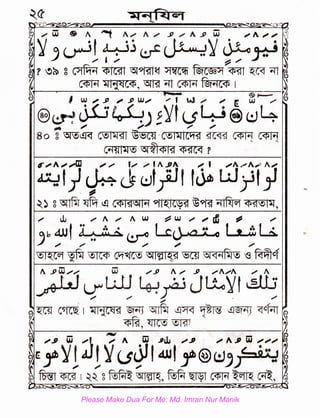 ২৫
মনযিল
فيومئذ لا يسئل عن ذنبه انس و لا
? ৩৯ ঃ সেদিন কারো অপরাধ সম্বন্ধে জিজ্ঞেস করা হবে না
কোন মানুষকে, আর না কোন জিনকে ।
جان ﴿﴾ فباي الاء ربكما تكذبن ﴿﴾
৪০ ঃ অতএব তোমরা উভয়ে তোমাদের রবের কোন কোন
নেয়ামত অস্বীকার করবে ?
لو انزلنا هذا القران على جبل لرايته
২১ ঃ আমি যদি এ কোরআন পাহাড়ের উপর নাযিল করতাম,
خاشعا متصدعا من خشية الله و
তাহলে তুমি তাকে দেখতে আল্লাহর ভয়ে অবনমিত ও বিদীর্ণ
تلك الامثال نضربها للناس لعلهم
হয়ে গেছে । মানুষের জন্য আমি এসব দৃষ্টান্ত এজন্য বর্ণনা
করি, যাতে তারা
يتفكرون ﴿﴾ هو الله الذي لا اله الا هو
চিন্তা করে । ২২ ঃ তিনিই আল্লাহ, তিনি ছাড়া কোন ইলাহ নেই,
Please Make Dua For Me: Md. Imran Nur Manik